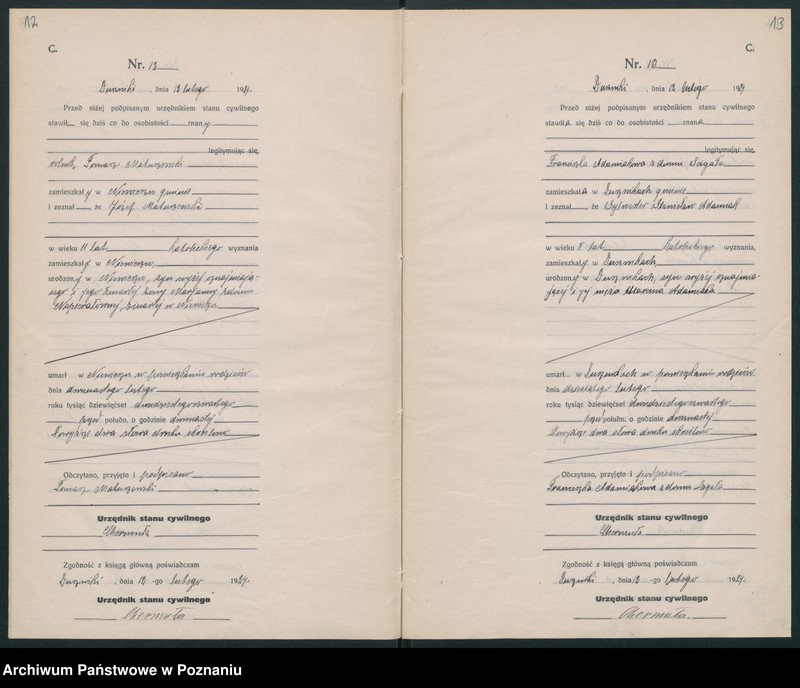 12
C.
Nr. 12
Duszniki, dnia 12 lutego 1924.
Przed niżej podpisanym urzędnikiem stanu cywilnego
stawił się dziś co do osobistości znany
legitymując się,
rolnik Tomasz Matuszewski
zamieszkały w Niewierzu gminie
i zeznał, że Józef Matuszewski
w wieku 11 lat katolickiego wyznania
zamieszkały w Niewierzu
urodzony w Niewierzu, syn wyżej oznajmiają-
cego i jego zmarłej żony Marjanny z domu
zmarłej w Niewierzu
umarł w Niewierzu w pomieszkaniu rodziców
dnia dwunastego lutego
roku tysiąc dziewięćset dwudziestegoczwartego
przed połudn. o godzinie dwunastej
Powyżej dwa słowa druku skreślono
Odczytano, przyjęto i podpisano
Tomasz Matuszewski
Urzędnik stanu cywilnego
Zgodność z księgą główną poświadczam
Duszniki, dnia 12-go lutego 1924.
Urzędnik stanu cywilnego
13
C.
Nr. 13
Duszniki, dnia 12 lutego 1924
Przed niżej podpisanym urzędnikiem stanu cywilnego
stawiła się dziś co do osobistości znana
legitymując się,
Franciszka Adamiakowa z domu
zamieszkała w Dusznikach gminie
i zeznał, że Sylwester Stanisław Adamiak
w wieku lat katolickiego wyznania,
zamieszkały w Dusznikach
urodzony w Dusznikach, syn wyżej oznajmia-
jącej i jej męża Adamiaka
umarł w Dusznikach w pomieszkaniu rodziców
dnia dziesiątego lutego
roku tysiąc dziewięćset dwudziestegoczwartego
przed połudn. o godzinie dwunastej
Powyżej dwa słowa druku skreślono
Odczytano, przyjęto i podpisano
Franciszka Adamiakowa z domu
Urzędnik stanu cywilnego
Zgodność z księgą główną poświadczam
Duszniki, dnia 12-go lutego 1924.
Urzędnik stanu cywilnego
Archiwum Państwowe w Poznaniu